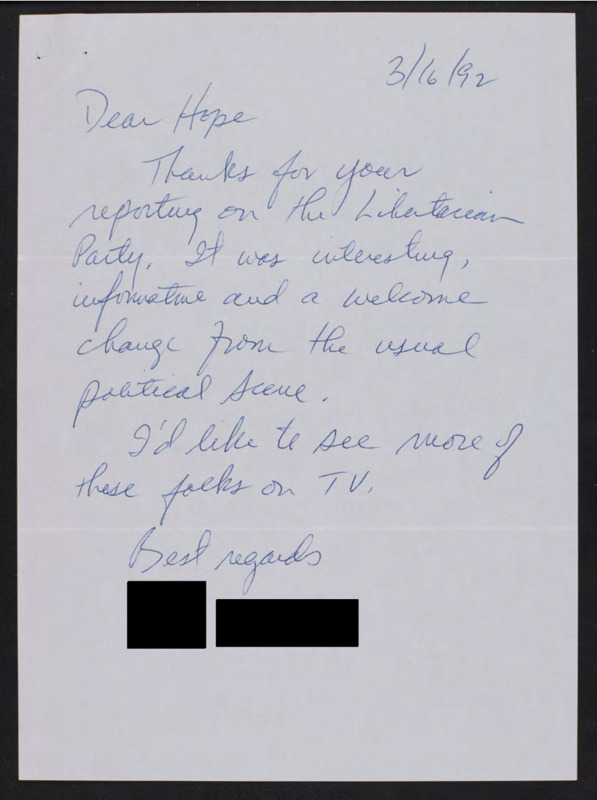 3/16/92
Dear Hope
Thanks for your
reporting on the Libertarian
Party. It was interesting,
informative and a welcome
change from the usual
political scene.
I'd like to see more of
these folks on TV.
Best regards